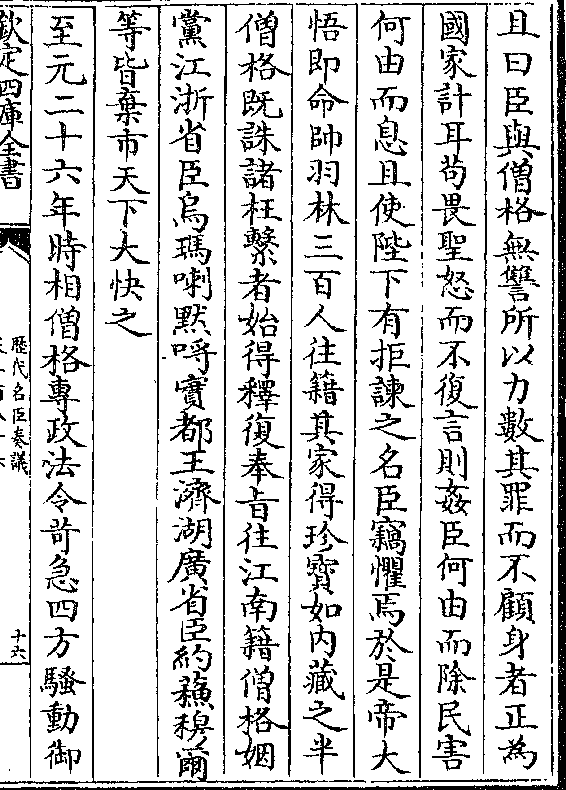 且曰臣與僧格無讐所以力數其罪而不顧身者正為
國家計耳苟畏聖怒而不復言則姦臣何由而除民害
何由而息且使陛下有拒諫之名臣竊懼焉於是帝大
悟即命帥羽林三百人往籍其家得珍寶如内藏之半
僧格既誅諸枉繫者始得釋復奉旨往江南籍僧格姻
黨江浙省臣烏瑪喇黙呼實都王濟湖廣省臣約蘇穆爾
等皆棄市天下大快之
至元二十六年時相僧格專政法令苛急四方騷動御
欽定四庫全書
歴代名臣奏議
十六